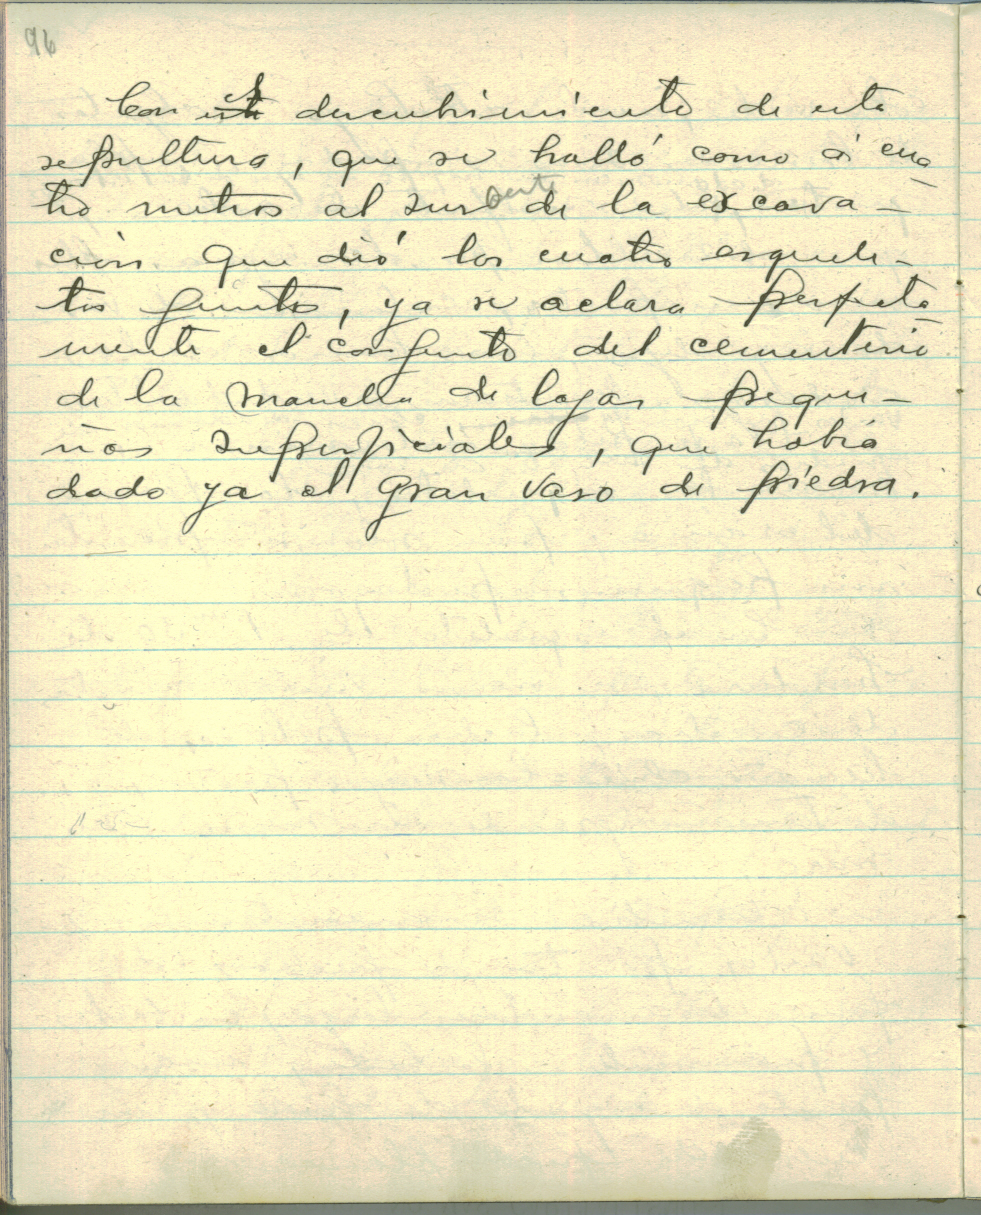 96
Con el descubrimiento de esta
sepultura, que se halló como á cua-
tro metros al sur oeste de la excava-
ción que dió los cuatro esquele-
tos juntos, ya se aclara perfecta-
mente el conjunto del cementerio
de la mancha de lajas peque-
ñas superficiales, que había
dado ya el gran vaso de piedra.